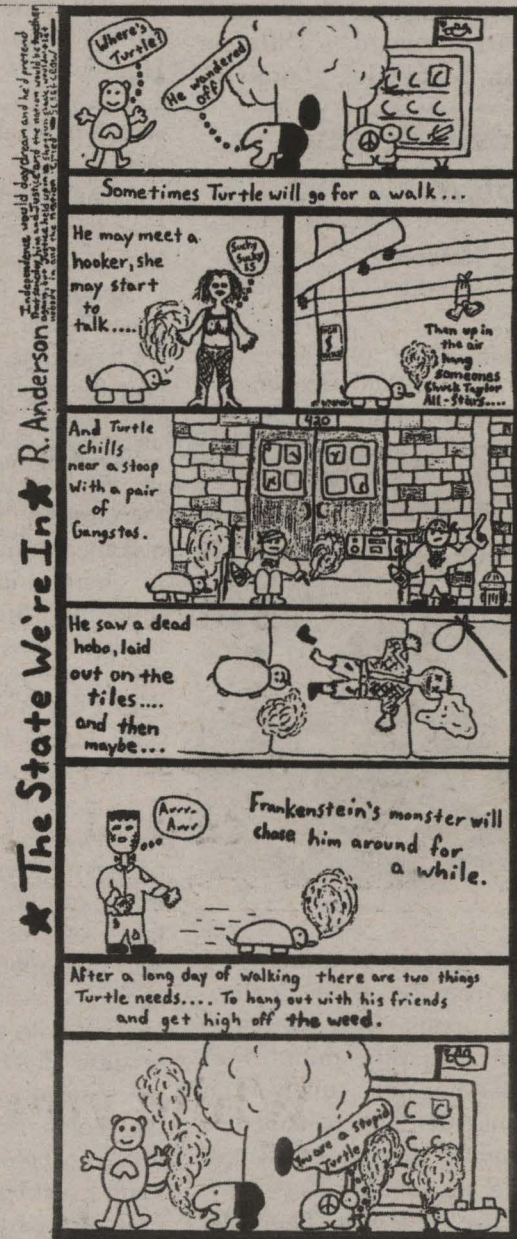 ★ The State We're In ★ R. Anderson
Independence would daydream and he'd pretend
Where's
Turtle?
He wandered
off
Sometimes Turtle will go for a walk...
He may meet a
hooker, she
may start
to
talk....
Sucky
Sucky
Then up in
the air
hang
someones
Chuck Taylor
All-Stars....
420
And Turtle
chills
near a stoop
With a pair
of
Gangstas.
He saw a dead
hobo, laid
out on the
tiles....
and then
maybe...
Arrr-
Arrr
Frankenstein's monster will
chase him around for
a while.
After a long day of walking there are two things
Turtle needs.... To hang out with his friends
and get high off the weed.
You are a stupid
Turtle